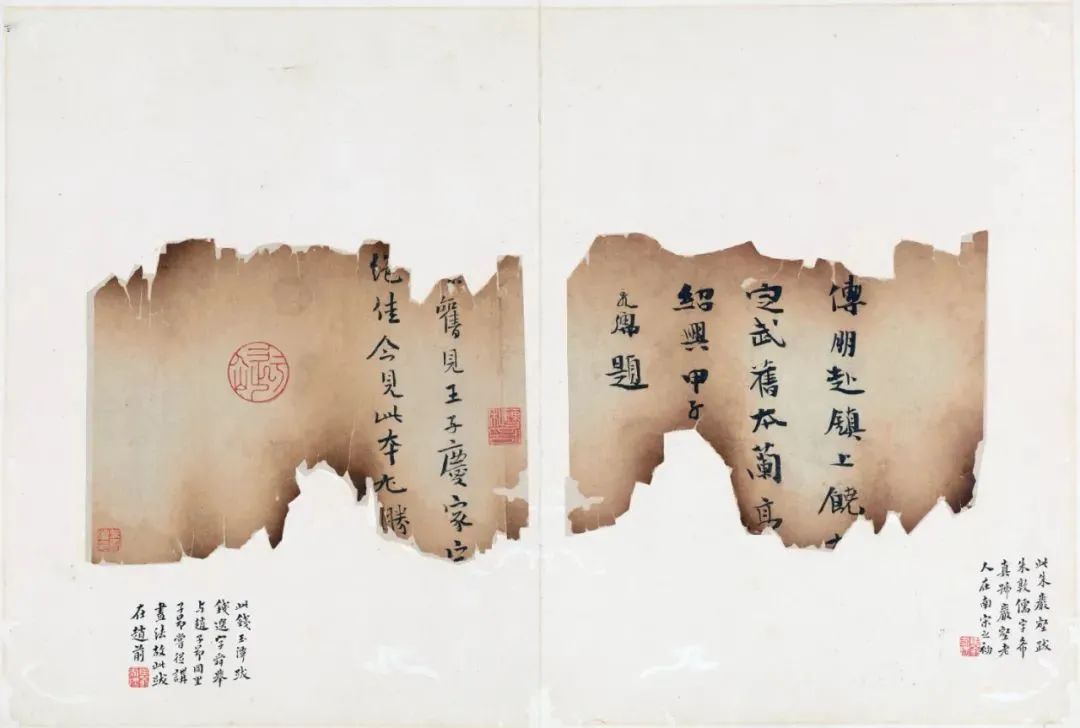 傅朋赴鎮上饒
定武舊本蘭亭
紹興甲子
題
此朱巖壑跋
朱敦儒字希
真號巖壑老
人在南宋之初
舊見王子慶家定
絶佳今見此本尤勝
此錢玉潭跋
錢選字舜舉
与趙子昂同里
子昂嘗從講
畫法故此跋
在趙前